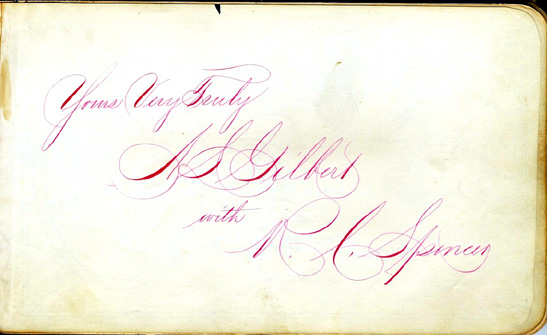 Yours Very Truly
A S Gilbert
with
R. C. Spencer